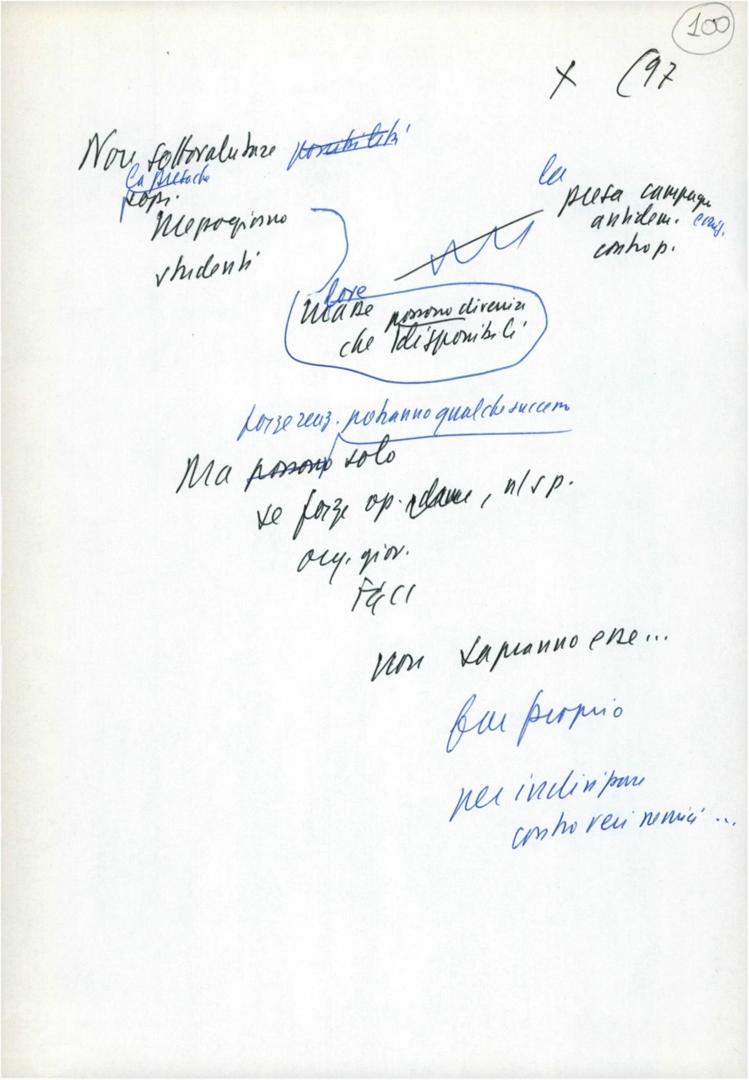 100
X (97
Non sottovalutare possibilità
la presa che
sopr.
Mezzogiorno
studenti
la
presa campagn
antidem.
contro p.
forze
masse possono divenire
che disponibili
forze reaz. potranno qualche successo
Ma possono solo
se forze op. , n/s p.
org. giov.
FGCI
non sapranno esse...
far proprio
per indirizzare
contro veri nemici ...